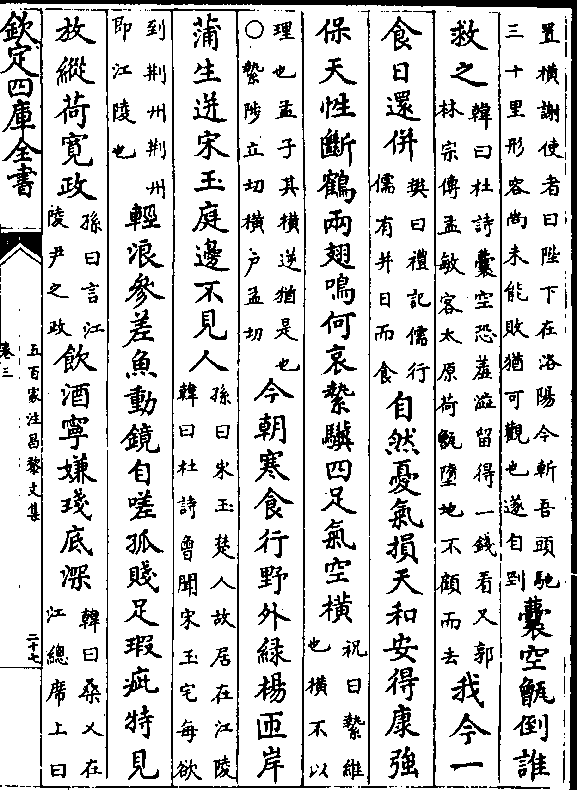 置橫謝使者曰陛下在洛陽今斬吾頭馳
三十里形容尚未能敗猶可觀也遂自剄
囊空甑倒誰
救之
韓曰杜詩囊空恐羞澁留得一錢看又郭
林宗傳孟敏客太原荷甑墮地不顧而去
我今一
食日還併
樊曰禮記儒行
儒有并日而食
自然憂氣損天和安得康強
保天性斷鶴兩翅鳴何哀縶驥四足氣空橫
祝曰縶維
也橫不以
理也孟子其橫逆猶是也
○縶陟立切橫户孟切
今朝寒食行野外綠楊匝岸
蒲生迸宋玉庭邊不見人
孫曰宋玉楚人故居在江陵
韓曰杜詩曾聞宋玉宅每欲
到荆州荆州
即江陵也
輕浪參差魚動鏡自嗟孤賤足瑕疵特見
放縱荷寬政
孫曰言江
陵尹之政
飲酒寧嫌琖底深
韓曰桑乂在
江總席上曰
欽定四庫全書
五百家注昌黎文集
卷三
二十七